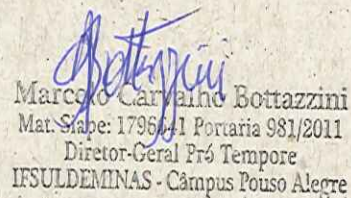 Bottazzini
Marcelo Carvalho Bottazzini
Mat. Siape: Portaria 981/2011
Diretor-Geral Pró Tempore
IFSULDEMINAS - Câmpus Pouso Alegre